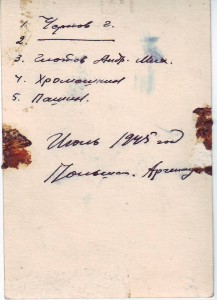 1. Чернов г.
2.
3. Глотов Андр. Мих.
4. Хромашин
5. Пашин.
Июль 1945 год
Польша.